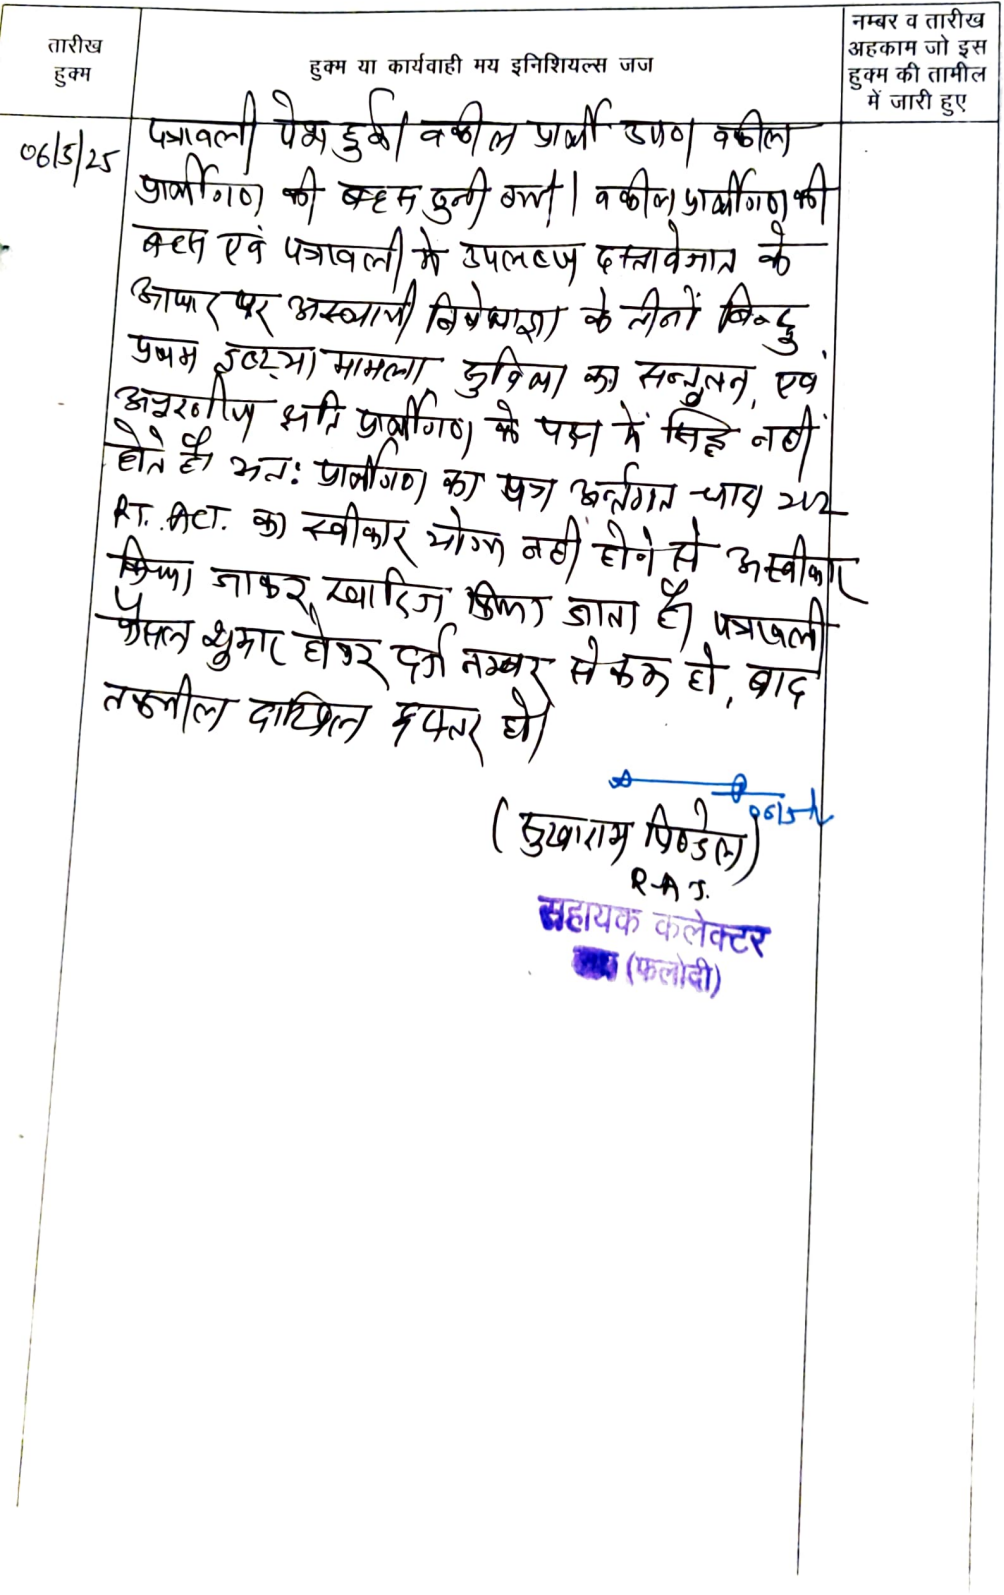 तारीख
हुक्म
हुक्म या कार्यवाही मय इनिशियल्स जज
नम्बर व तारीख
अहकाम जो इस
हुक्म की तामील
में जारी हुए
06/5/25
पत्रावली पेश हुई। वकील प्रार्थी उप० वकील
प्रार्थीगण की बहस सुनी गई। वकील प्रार्थीगण की
बहस एवं पत्रावली मे उपलब्ध दस्तावेजात के
आधार पर अस्थायी निषेधाज्ञा के तीनों बिन्दु
प्रथम दृष्टया मामला, सुविधा का सन्तुलन, एवं
अपूरणीय क्षति प्रार्थीगण के पक्ष में सिद्ध नहीं
होते है। अतः प्रार्थीगण का पत्र अर्न्तगत धारा 212
RT. ACT. का स्वीकार योग्य नहीं होने से अस्वीकार
किया जाकर खारिज किया जाता है। पत्रावली
फैसल शुमार होकर दर्ज नम्बर से कम हो, बाद
तकमील दाखिल दफ्तर हो।
06/5/25
(सुखाराम पिण्डेल)
R.A.S.
सहायक कलेक्टर
(फलोदी)